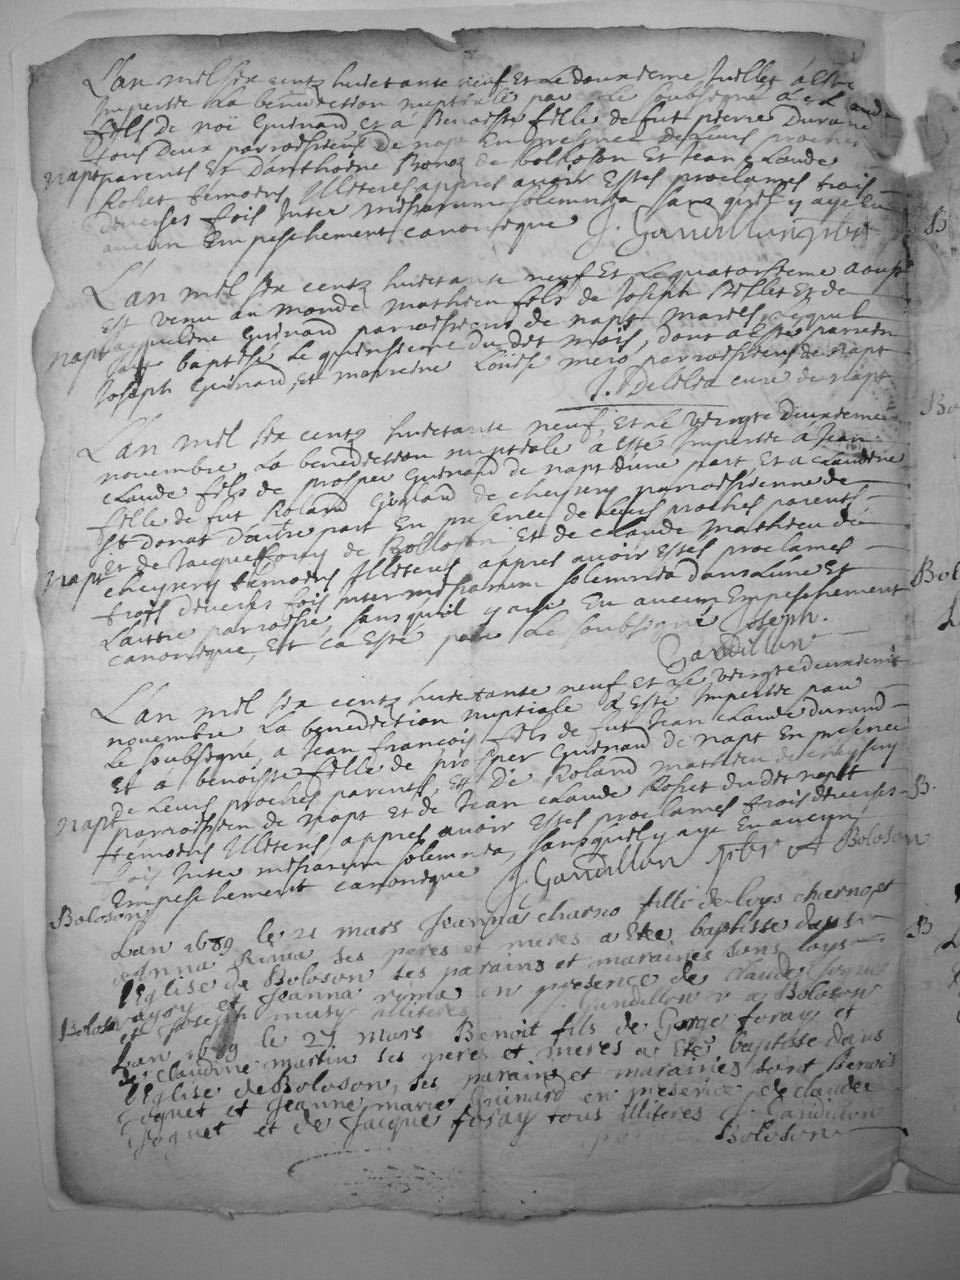 L'an mil six centz huictante neuf et le douxieme Juillet à esté
Impertie la benediction nuptiale par le soubsigné à
fils de noï Guinard et à Benoiste fille de fut pierre Durand
tous deux parroissiens de napt En presence de leurs proches
napt parents et d'anthoine de bollozon Et Jean Claude
Rohet témoins Illiteres appres avoir Estes proclames trois
diverses fois Inter missarum solemnia sans quil y aye Eu
aucun Empeschement canonique J. Gandillon pbr
L'an mil six centz huictante neuf Et le quatorsieme aoust
Est venu au monde mathieu fils de Joseph Billet Et de
napt Jaqueline Guinard parroissiens de napt maries, lequel
baptisé le quinsieme du dit mois, dont a esté parrein
Joseph Guinard, et marreine Loüise mero parroissiens de napt
J. Delilia curé de napt
L'an mil six centz huictante neuf, Et le vingte deuxieme
novembre, La benediction nuptiale à esté Impertie à Jean
Claude fils de prosper Guinard de napt d'une part Et à Claudine
fille de fut Roland Girard de cheysery parroissienne de
St Donat d'autre part En presence de leurs proches parents
Et de Jacque foray de Bollozon, Et de claude mathieu de
napt cheysery témoins Illiteres appres avoir Estes proclames
trois diverses fois Inter missarum solemnia dans L'une Et
L'autre parroisse, sans quil y aye Eu aucun Empeschement
canonique, Et ca Esté par Le soubsigné Joseph.
Gandillon
L'an mil six centz huictante neuf Et le vingte deuxieme
novembre La benediction nuptiale à Esté Impertie par
Le soubsigné, à Jean françois fils de fut Jean claude durand
Et à benoiste fille de prosper Guinard de napt En presence
de Leurs proches parents, Et De Roland mathieu de cheysery
napt parroissien de napt Et de Jean claude Rohet du dit napt
témoins Illiteres appres avoir Estes proclames trois diverses
fois Inter missarum solemnia, sans quil y aye Eu aucun
Empeschement canonique J. Gandillon pbr A Boloson
Boloson
Lan 1689 le 21 mars Jeanna charno fille de loys charno et
Anna Rima ses peres et meres a Eté baptisse dans
l'Eglise de Boloson ses parains et maraines sont loys
Boloson et Jeanna rima en presence de claude Joquet
et Joseph musy illiteres J. Gandillon v a Boloson
Lan 1689 le 27 mars Benoit fils de George foray et
de claudine martin ses peres et meres a Eté baptisse dans
l'Eglise de Boloson, ses parains et maraines sont Benoit
Joquet et Jeanne marie Guinard en presence de claude
Joquet et de Jacque foray tous illiteres J. Gandillon
Boloson